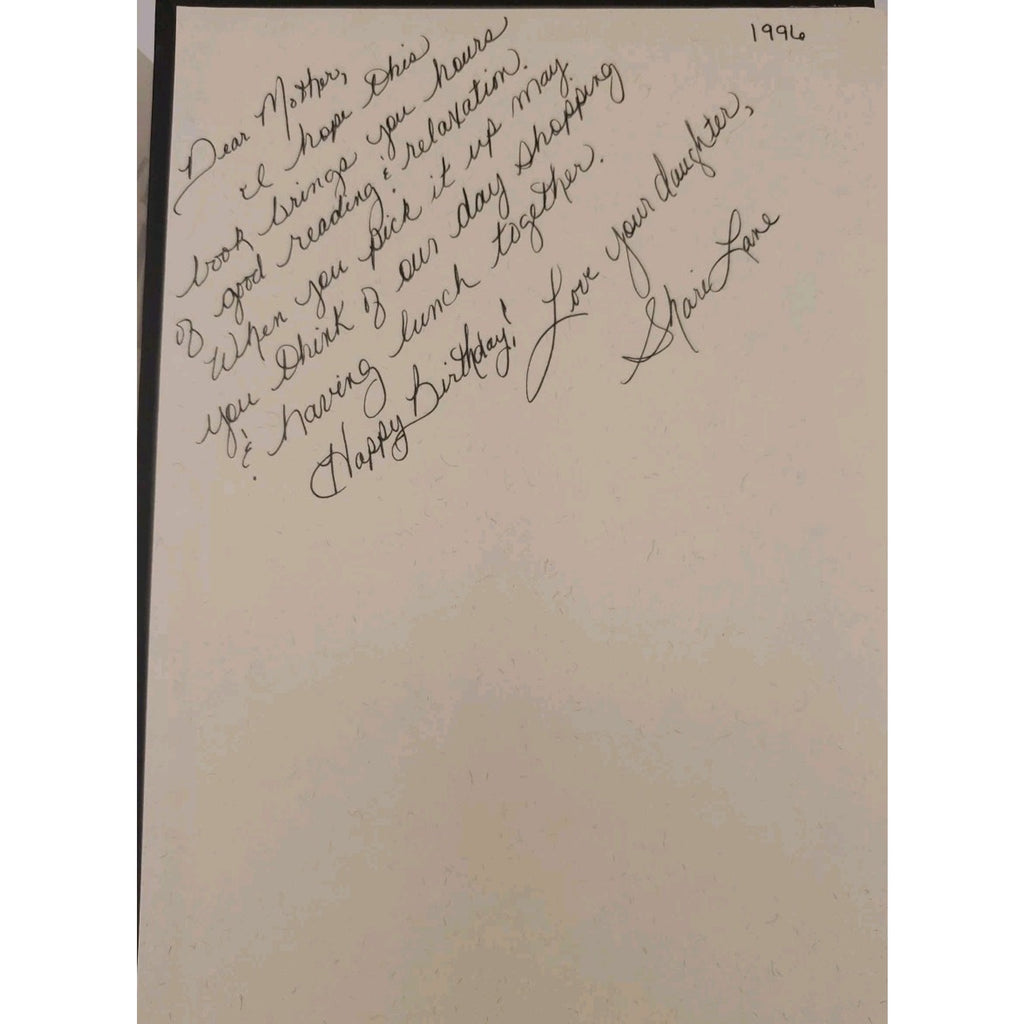 1996
Dear Mother,
I hope this
book brings you hours
of good reading & relaxation.
When you pick it up may
you think of our day shopping
& having lunch together.
Happy Birthday! Love your daughter,
Shari Lane